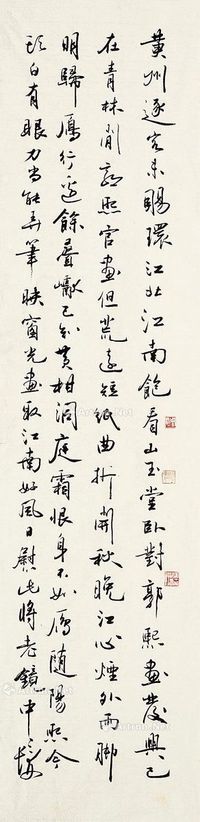 黃州逐客未賜環江北江南飽看山玉堂臥對郭熙畫發興已
在青林間郭熙官畫但荒遠短紙曲折開秋晚江心煙外雨脚
明歸雁行邊餘疊巘黃柑洞庭霜恨身不如雁隨陽熙今
頭白有眼力尚能弄筆映窗光畫取江南好風日慰此將老鏡中髮